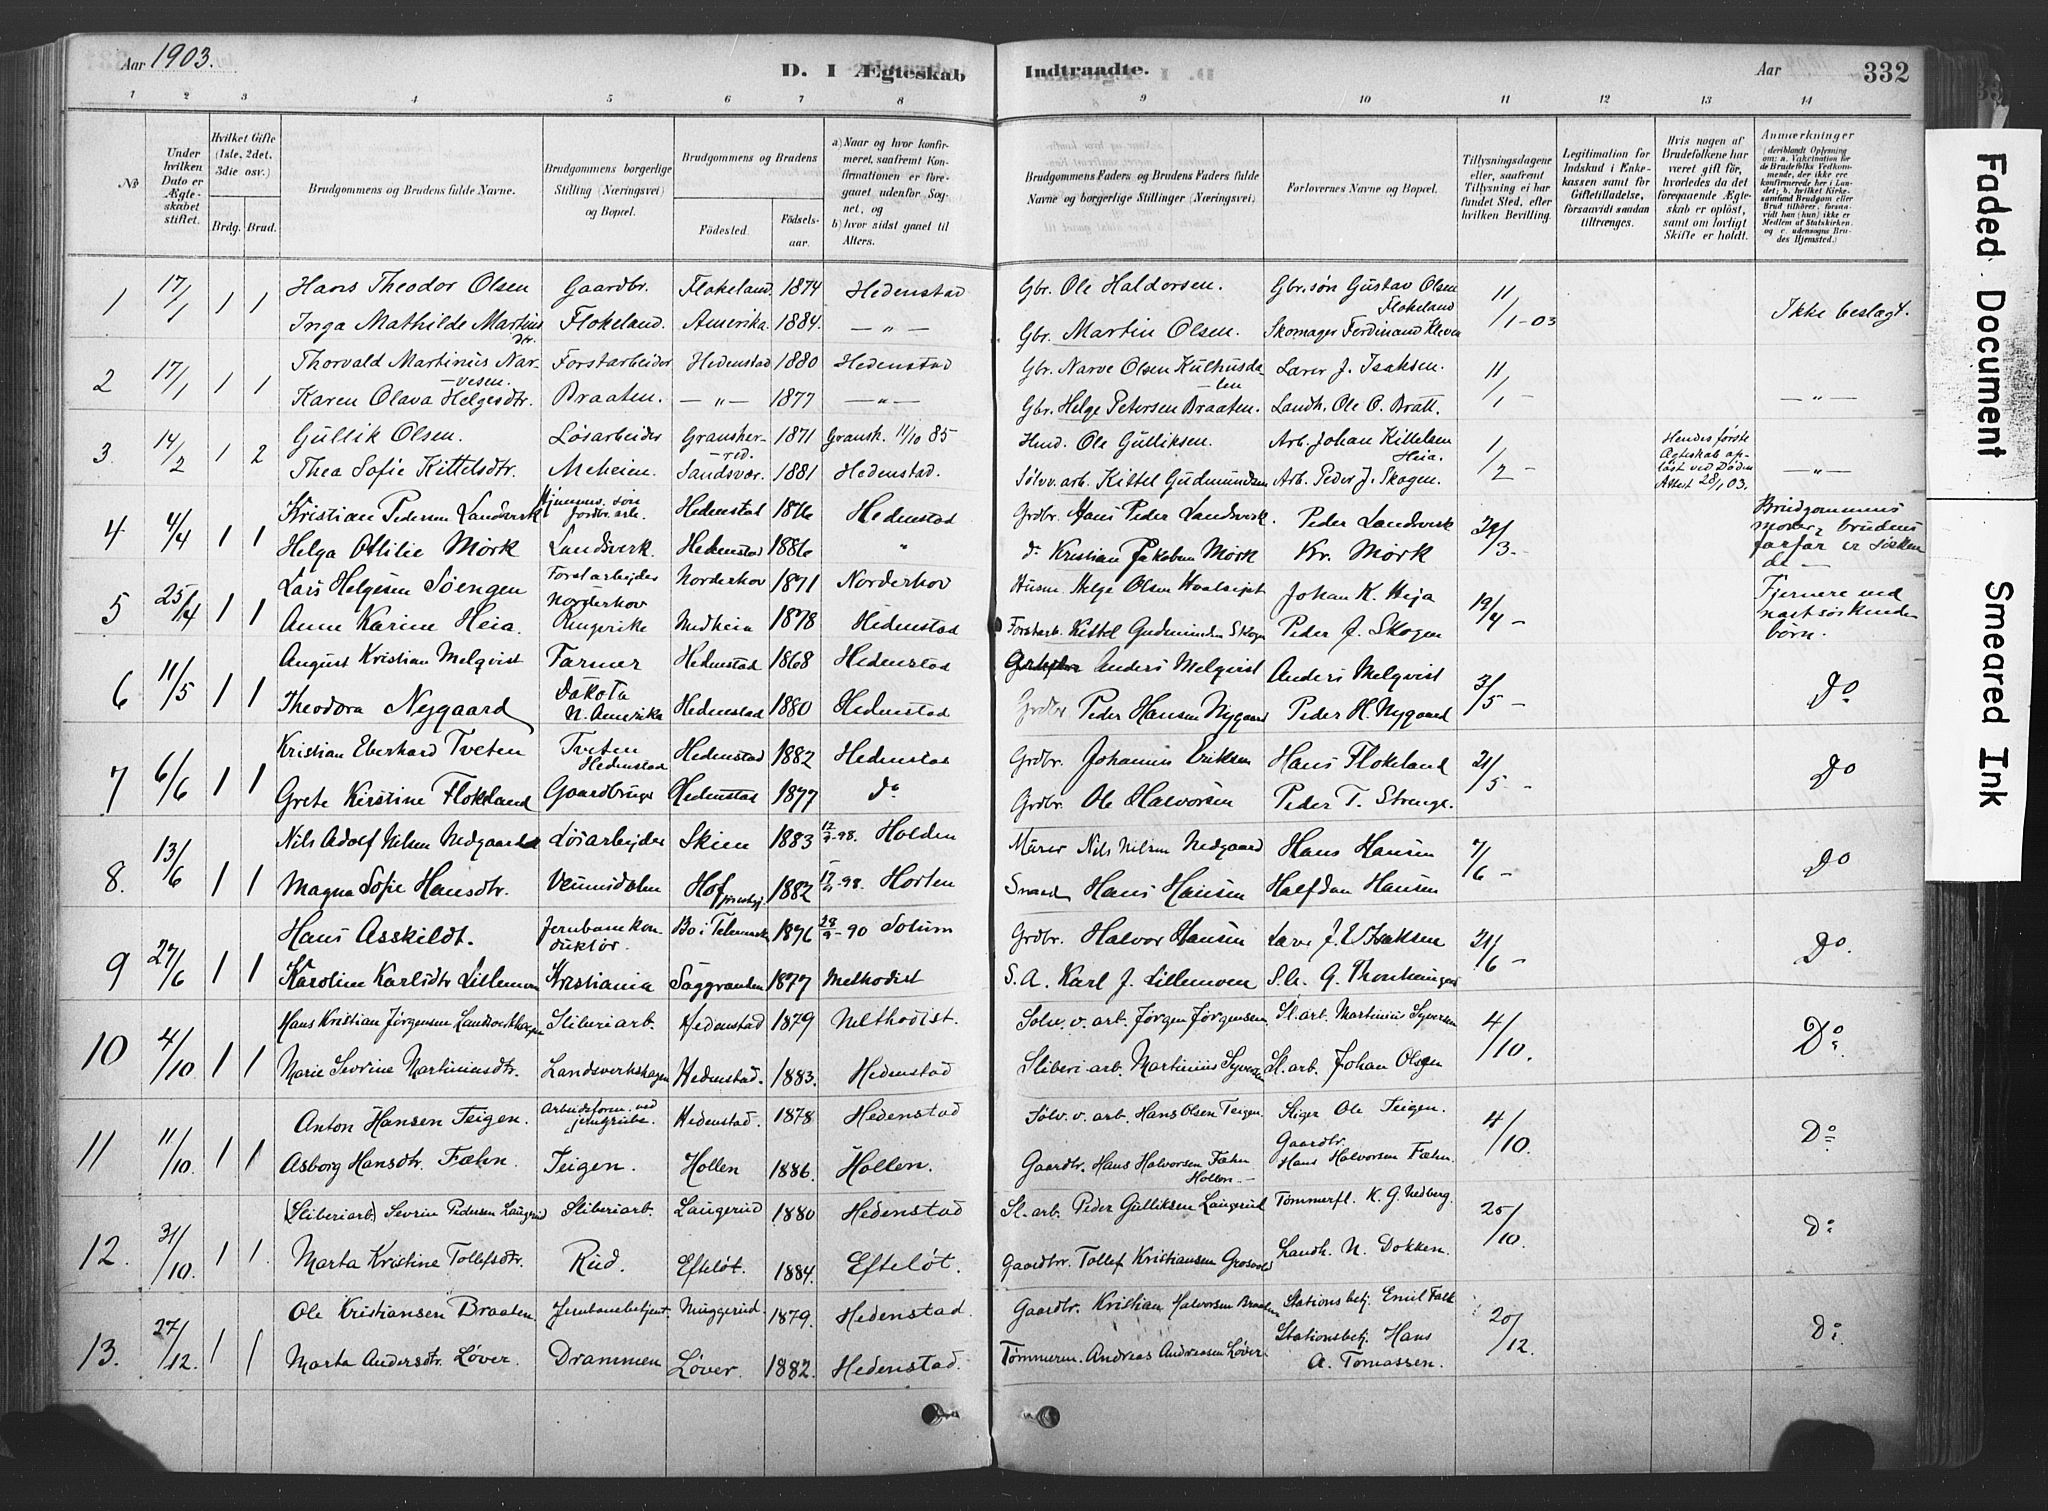 Aar 1903.
D. I Ægteskab Indtraadte.
Aar
332
1 2 3 4 5 6 7 8 9 10 11 12 13 14
No
Under hvilken Dato er Ægteskabet stiftet.
Hvilket Gifte (1ste, 2det, 3die osv.)
Brdg. Brud.
Brudgommens og Brudens fulde Navne.
Brudgommens borgerlige Stilling (Næringsvei) og Bopæl.
Brudgommens og Brudens
Fødested. Fødselsaar.
a) Naar og hvor konfirmeret, saafremt Konfirmationen er foregaaet udenfor Sognet, og
b) hvor sidst gaaet til Alters.
Brudgommens Faders og Brudens Faders fulde Navne og borgerlige Stillinger (Næringsvei)
Forlovernes Navne og Bopæl.
Tillysningsdagene eller, saafremt Tillysning ei har fundet Sted, efter hvilken Bevilling.
Legitimation for Indskud i Enkekassen samt for Giftetilladelse, forsaavidt saadan tiltrænges.
Hvis nogen af Brudefolkene har været gift før, hvorledes da det foregaaende Ægteskab er opløst, samt om lovligt Skifte er holdt.
Anmærkninger
1 17/1 1 1 Hans Theodor Olsen Gaardbr. Flokeland. 1874 Hedenstad Gbr. Ole Haldorsen. Gbr. søn Gustav Olsen Flokeland 11/1-03 Ikke beslægt.
Inga Mathilde Martinsdtr. Flokeland. Amerika. 1884. —"— Gbr. Martin Olsen. Skomager Ferdinand Kleven
2 17/1 1 1 Thorvald Martinius Narvesen. Forstarbeider Hedenstad 1880 Hedenstad Gbr. Narve Olsen Kulhusdalen Lærer J. Isaksen. 11/1 - —"—
Karen Olava Helgesdtr. Braaten. —"— 1877 —"— Gbr. Helge Petersen Braaten. Landh. Ole O. Bratt.
3 14/2 1 2 Gullik Olsen. Løsarbeider Gransherred. 1871 Gransh. 11/10 85 Husm. Ole Gulliksen. Arb. Johan Kittelsen Heia. 1/2 - Hendes første Ægteskab opløst ved Døden Attest 28/1 03. —"—
Thea Sofie Kittelsdtr. Meheien. Sandsvær. 1881 Hedenstad. Sølvv. arb. Kittel Gudmundsen Arb. Peder J. Skogen.
4 4/4 1 1 Kristian Pedersen Landsverk Hedenstad 1876 Hedenstad Grdbr. Hans Peder Landsverk. Peder Landsverk 29/3 - Brudgommens moder & brudens farfar er søskende —
Helga Otilie Mørk Landsverk. Hedenstad 1886 " do. Kristian Jakobsen Mørk Kr. Mørk
5 25/4 1 1 Lars Helgesen Soengen Forstarbejder Norderhov 1871 Norderhov Husm. Helge Olsen Johan K. Heja 19/4 - Fjernere end næstsøskendebørn.
Anne Karine Heia. Norderhov Ringerike Medheia 1878 Hedenstad Forstarb. Kittel Gudmundsen Skogen Peder J. Skogen
6 11/5 1 1 August Kristian Melqvist Farmer Hedenstad 1868 Hedenstad Anders Melqvist Anders Melqvist 3/5 - Do
Theodora Nygaard Dakota N. Amerika Hedenstad 1880 Hedenstad Grdbr Peder Hansen Nygaard Peder H. Nygaard
7 6/6 1 1 Kristian Eberhard Tveten Tveten Hedenstad Hedenstad 1882 Hedenstad Grdbr. Johannes Eriksen Hans Flokeland 21/5 - Do
Grete Kirstine Flokeland Gaardbruger Hedenstad 1877 Do Grdbr. Ole Halvorsen Peder T. Strenge.
8. 13/6 1 1 Nils Adolf Nilsen Nedgaard Løsarbejder Skien 1883 -98. Holden Murer Nils Nilsen Nedgaard Hans Hansen 7/6 - Do
Magna Sofie Hansdtr. Hof 1882 -98. Horten Hans Hansen Halfdan Hansen
9 27/6 1 1 Hans Asskildt. Jernbanekonduktør. Bo i Telemarken 1876 28/9 - 90 Solum Grdbr. Halvor Hansen Lærer J. Isaksen 21/6 - Do.
Karoline Karlsdtr Lillemoen Kristiania Saggrenden 1877 Methodist S. A. Karl J. Lillemoen
10 4/10 1 1 Hans Kristian Jørgensen Landsverkhagen Sliberiarb. Hedenstad 1879 Methodist. Sølv. v. arb. Jørgen Jørgensen. Sl. arb. Martinius Syversen 4/10. Do.
Marie Sevrine Martiniusdtr. Landsverkshagen Hedenstad. 1883. Hedenstad Sliberi arb. Martinius Syversen Sl. arb. Johan Olsen
11 11/10 1 1 Anton Hansen Teigen. Arbeidsform. ved jerngrube. Hedenstad. 1878 Hedenstad Sølv. v. arb. Hans Olsen Teigen. Stiger Ole Teigen. 4/10. Do
Asborg Hansdtr. Fæhn. Teigen. Hollen 1886. Hollen. Gaardbr. Hans Halvorsen Fæhn Hollen. — Gaardbr. Hans Halvorsen Fæhn.
12. 31/10. 1 1. (Sliberiarb.) Sevrin Pedersen Laugerud Sliberiarb. Laugerud 1880 Hedenstad Sl. arb. Peder Gulliksen Laugerud Tømmerfl. K. G. Nedberg. 25/10. Do
Marta Kristine Tollefsdtr. Rud. Efteløt. 1884. Efteløt. Gaardbr. Tollef Kristiansen Grosvold Landh. N. Dokken.
13. 27/12. 1 1 Ole Kristiansen Braaten. Jernbanebetjent. Muggerud. 1879. Hedenstad. Gaardbr. Kristian Halvorsen Braaten Stationsbetj. Emil Falk 20/12. Do
Marta Andersdtr. Løver. Drammen Løver. 1882. Hedenstad. Tømmerm. Andreas Andreasen Løver. Stationsbetj. Hans A. Tomassen.
Faded Document
Smeared Ink